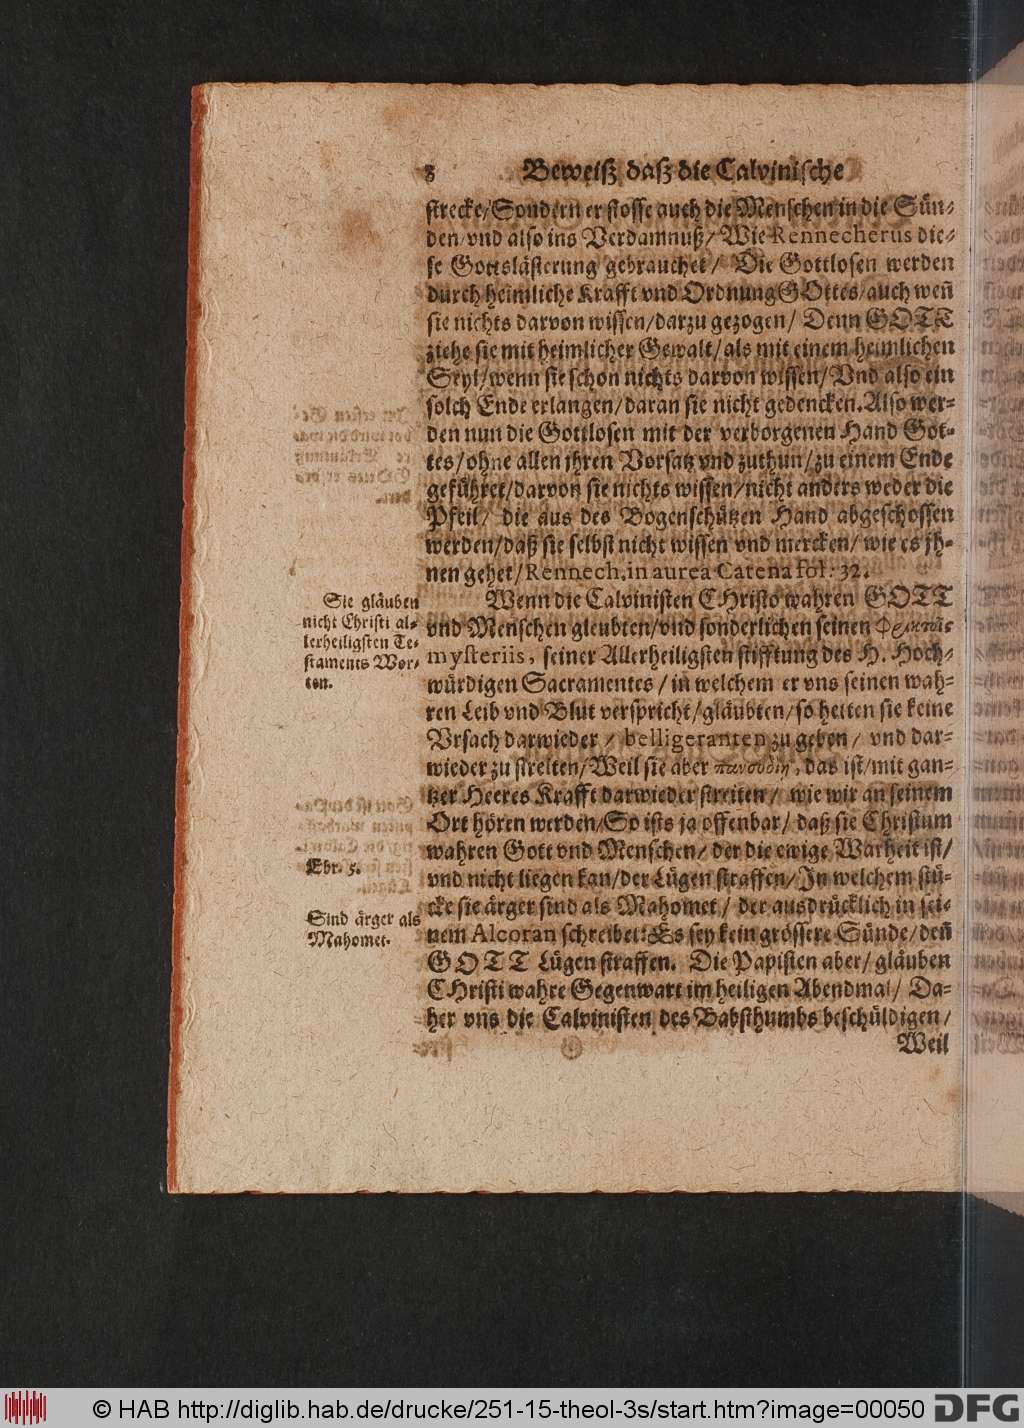 8 Beweiß daß die Calvinische
strecke/Sondern er stosse auch die Menschen in die Sün-
den/vnd also ins Verdamnuß/Wie Rennecherus die-
se Gottslästerung gebrauchet/ Die Gottlosen werden
durch heimliche Krafft vnd Ordnung GOttes/auch weñ
sie nichts darvon wissen/darzu gezogen/ Denn GOTT
ziehe sie mit heimlicher Gewalt/als mit einem heimlichen
Seyl/wenn sie schon nichts darvon wissen/Vnd also ein
solch Ende erlangen/daran sie nicht gedencken. Also wer-
den nun die Gottlosen mit der verborgenen Hand Got-
tes/ohne allen jhren Vorsatz vnd zuthun/zu einem Ende
geführet/darvon sie nichts wissen/nicht anders weder die
Pfeil/ die aus des Bogenschützen Hand abgeschossen
werden/daß sie selbst nicht wissen vnd mercken/ wie es jh-
nen gehet/Rennech. in aurea Catena fol. 32.
Sie gläuben
nicht Christi al-
lerheiligsten Te-
staments Wor-
ten.
Wenn die Calvinisten CHristo wahren GOTT
vnd Menschen gleubten/vnd sonderlichen seinen
mysteriis, seiner Allerheiligsten stifftung des H. Hoch-
würdigen Sacramentes/in welchem er vns seinen wah-
ren Leib vnd Blut verspricht/gläubten/so hetten sie keine
Vrsach darwieder/ belligeranten zu geben/ vnd dar-
wieder zu streiten/Weil sie aber πανσυδίῃ, das ist/mit gan-
tzer Heeres Krafft darwieder streiten/ wie wir an seinem
Ort hören werden/So ists ja offenbar/ daß sie Christum
wahren Gott vnd Menschen/ der die ewige Warheit ist/
Ebr. 5.
vnd nicht liegen kan/der Lügen straffen/In welchem stü-
cke sie ärger sind als Mahomet/ der ausdrücklich in sei-
Sind ärger als
Mahomet.
nem Alcoran schreibet: Es sey kein grössere Sünde/deñ
GOTT Lügen straffen. Die Papisten aber/ gläuben
CHristi wahre Gegenwart im heiligen Abendmal/ Da-
her vns die Calvinisten des Babsthumbs beschüldigen/
Weil
© HAB http://diglib.hab.de/drucke/251-15-theol-3s/start.htm?image=00050
DFG